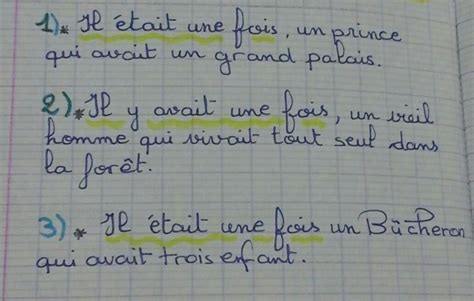 1)* Il était une fois, un prince
qui avait un grand palais.
2)* Il y avait une fois, un vieil
homme qui vivait tout seul dans
la forêt.
3)* Il était une fois un Bûcheron
qui avait trois enfant.